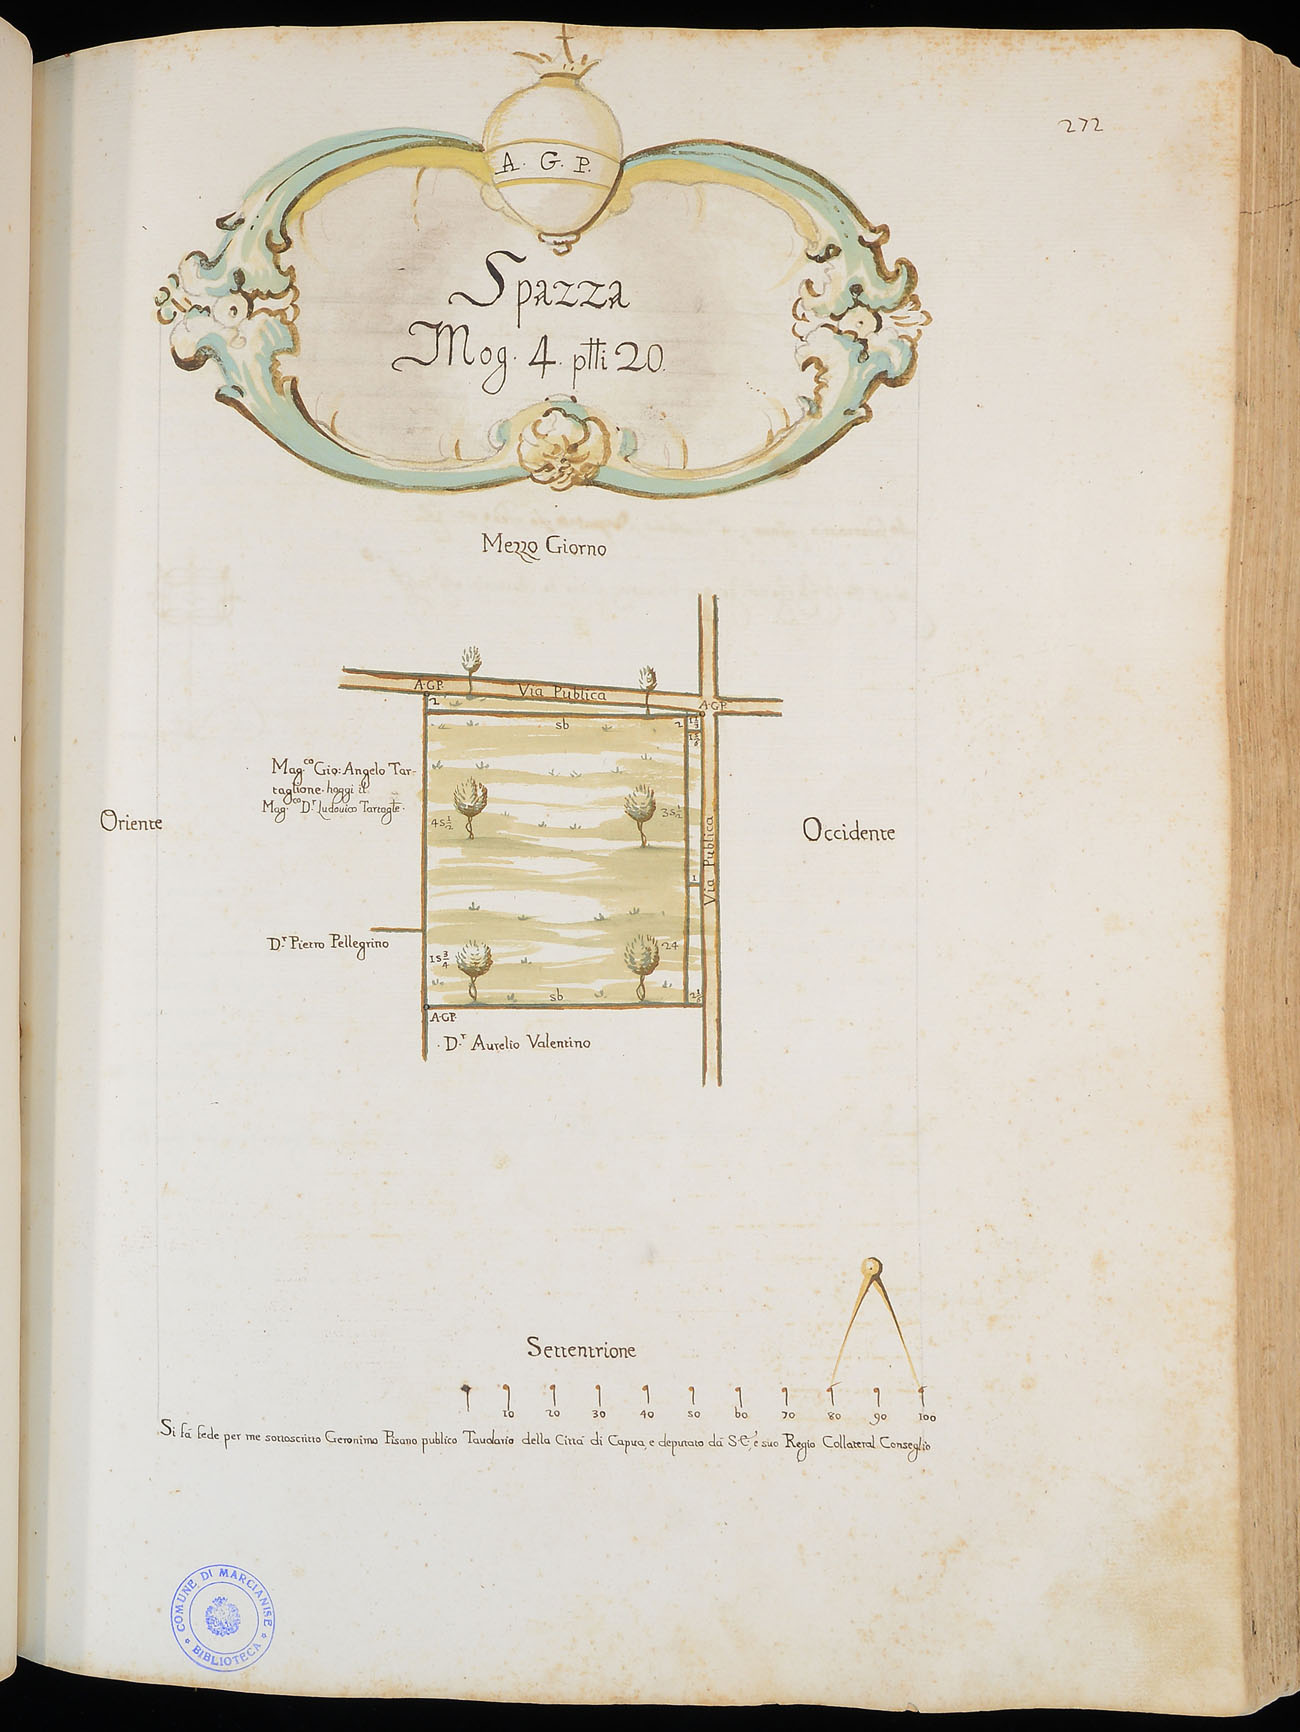 272
A. G. P.
Spazza
Mog. 4. ptti 20.
Mezzo Giorno
A.G.P.
Via Publica
A.G.P.
2
sb
2
Mag.co Gio: Angelo Tar-
taglione. hoggi il
Mag.co D.r Ludovico Tartagle.
Oriente
45 1/2
35 1/2
Via Publica
Occidente
1
D.r Pietro Pellegrino
15 3/4
24
sb
A.G.P.
D.r Aurelio Valentino
Settentrione
10 20 30 40 50 60 70 80 90 100
Si fà fede per me sottoscritto Geronimo Pisano publico Tavolario della Città di Capua, e deputato dà S.E. è suo Regio Collateral Conseglio
COMUNE DI MARCIANISE
BIBLIOTECA